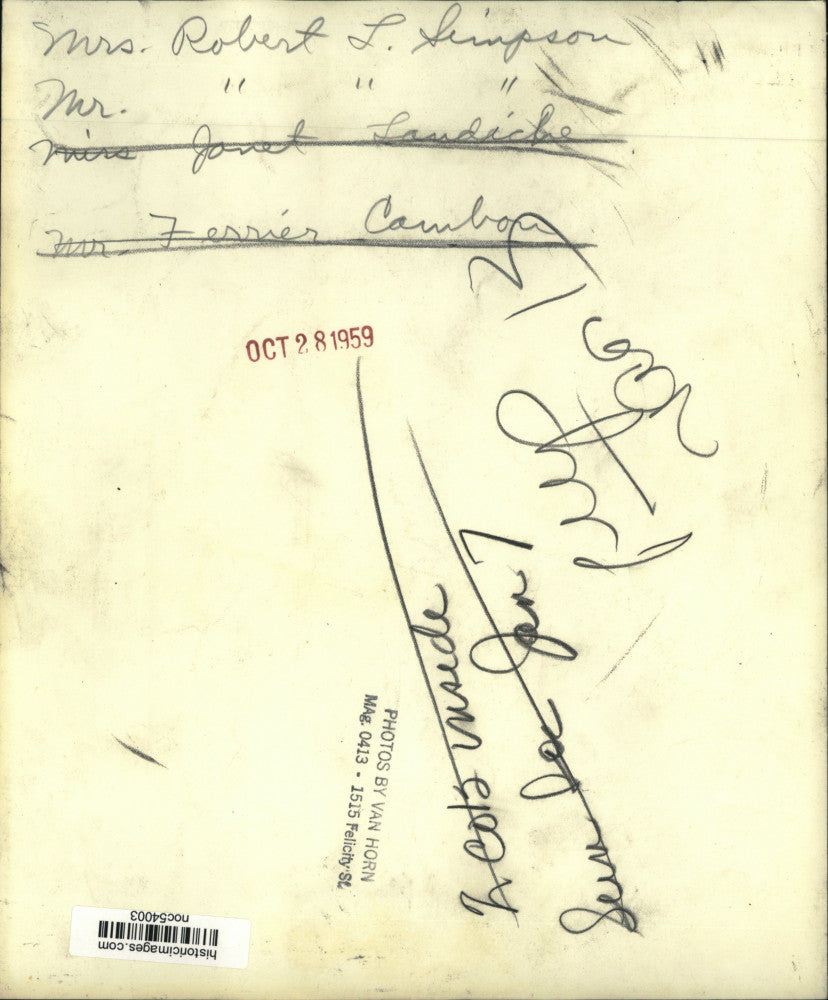 Mrs. Robert L. Simpson
Mr. " " "
Miss Janet Landäche
Mr. Ferrier Cambon
OCT 28 1959
2 cols inside
Sun soc Jan 7
PHOTOS BY VAN HORN
MAg. 0413 - 1515 Felicity St.
historicimages.com
noc54003